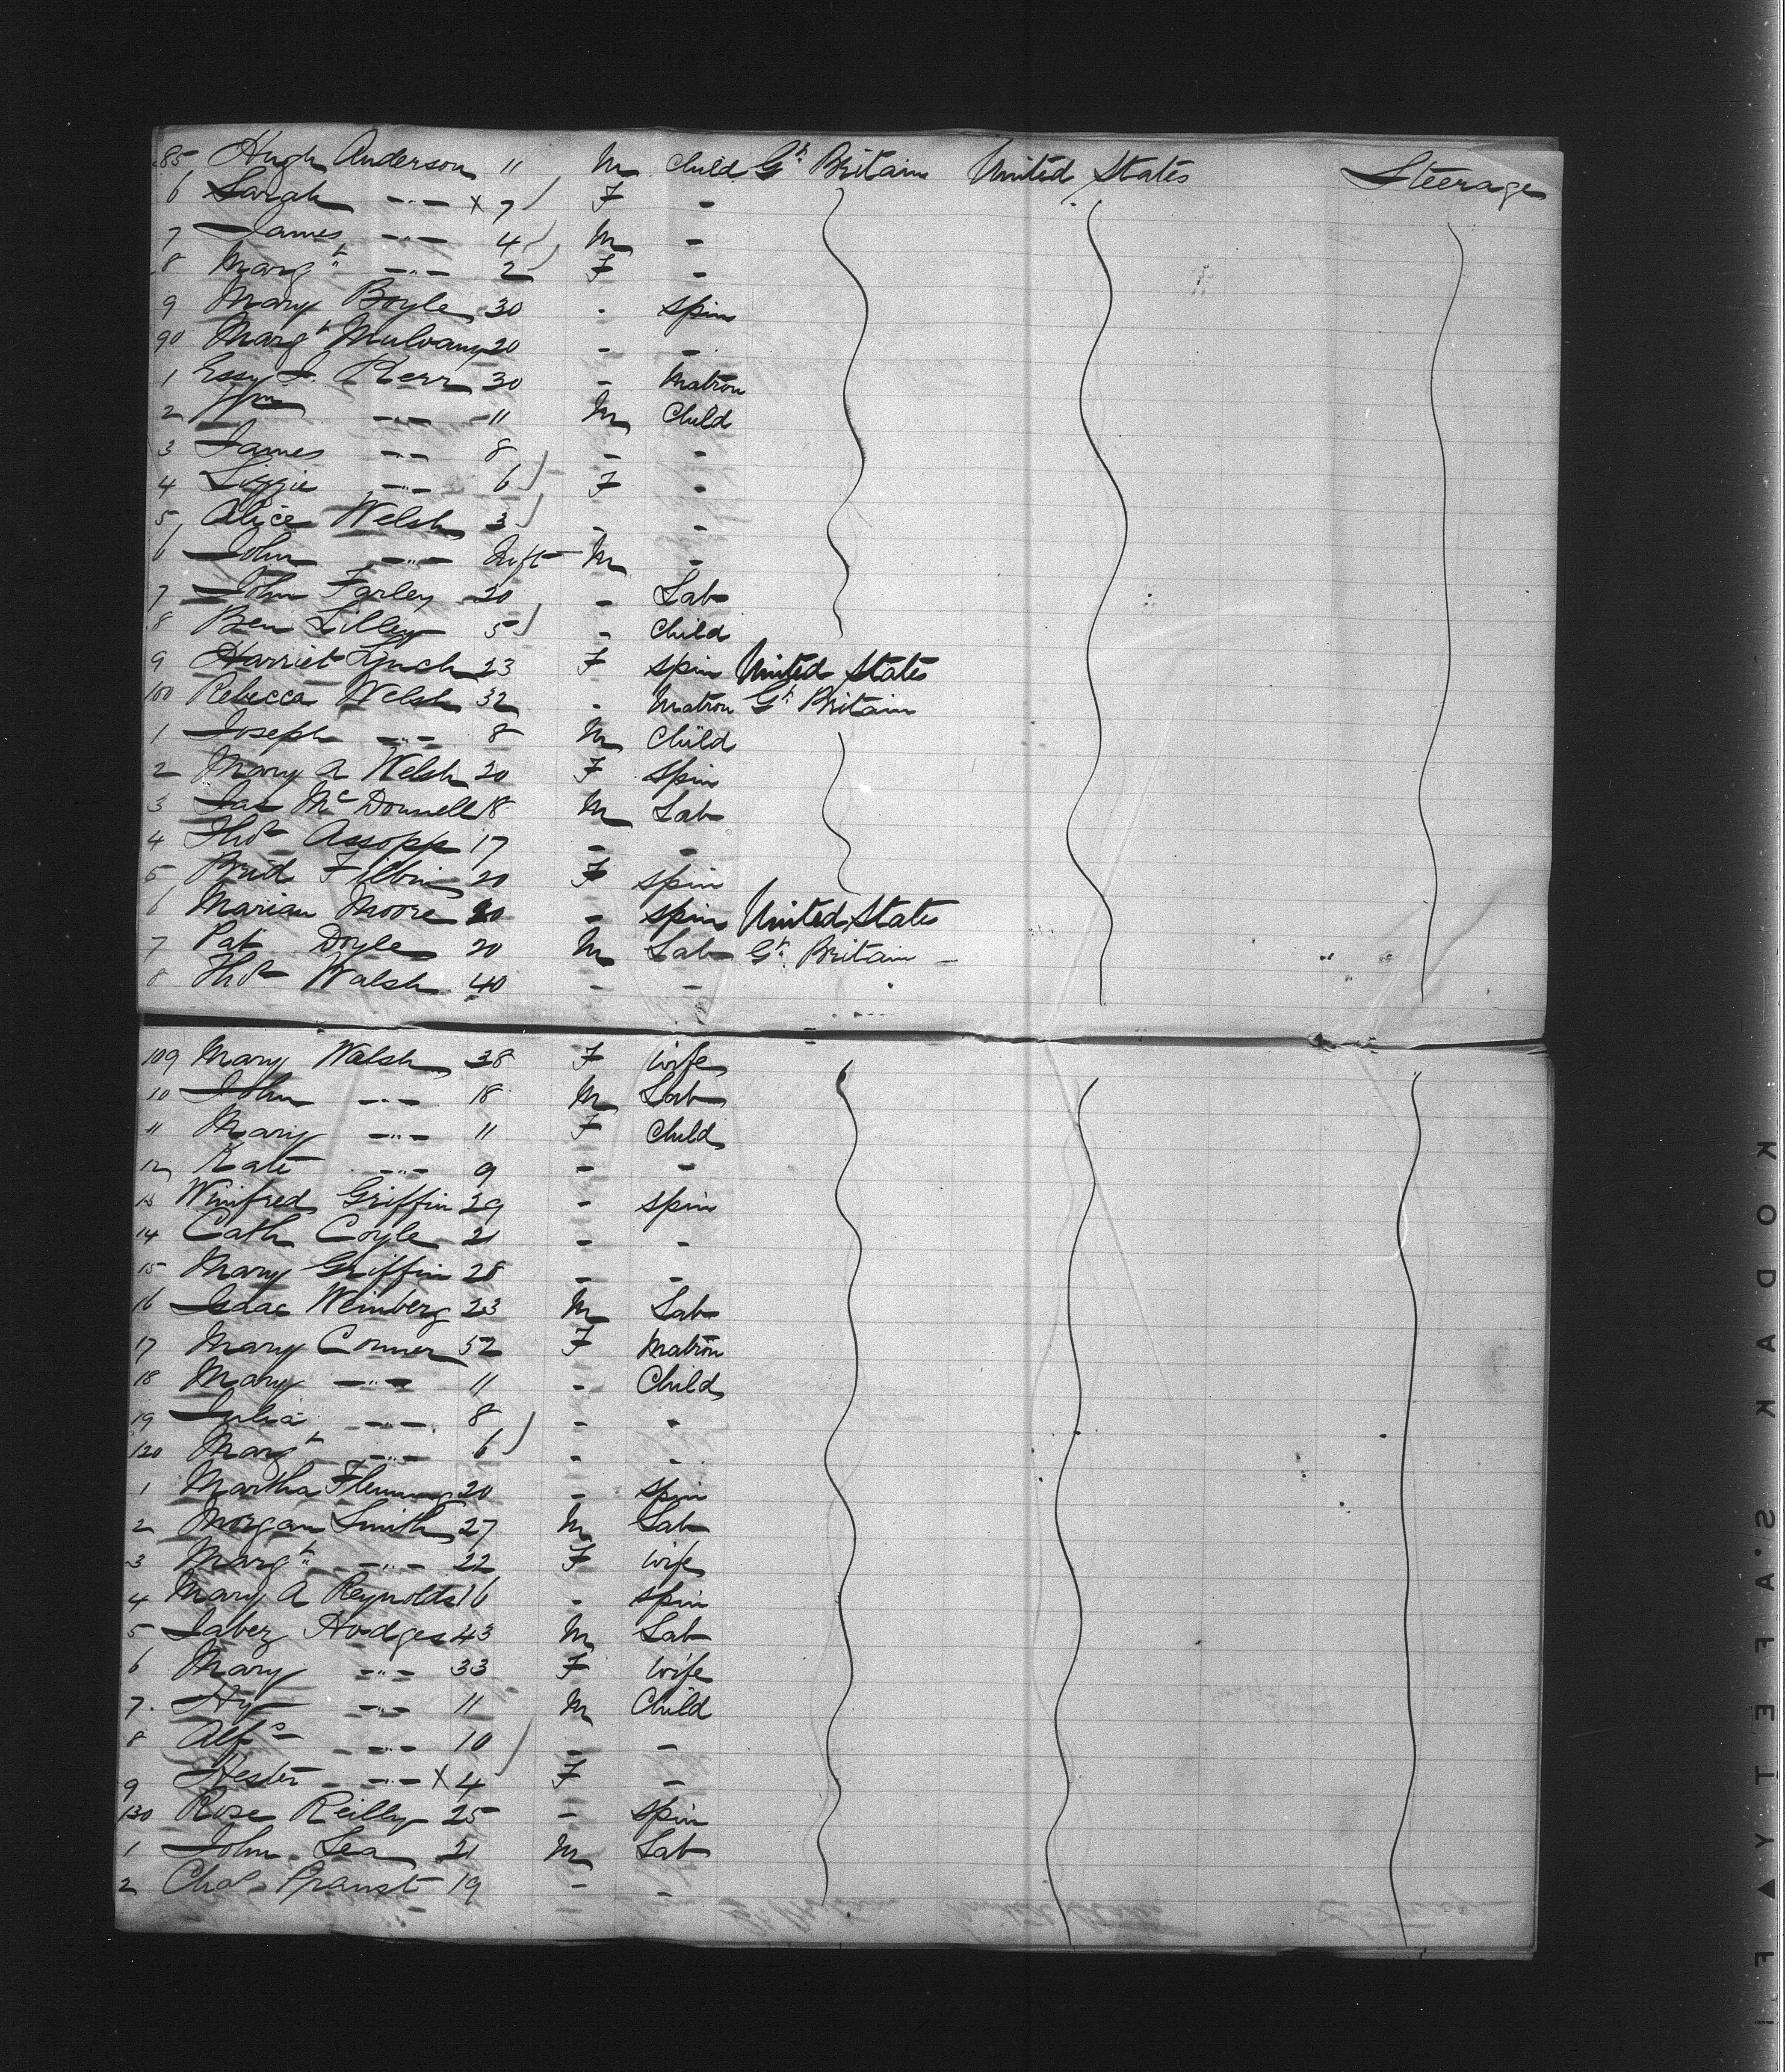 85 Hugh Anderson 11 M Child Gt Britain United States Steerage
6 Sarah -"- x 7 F -
7 James -"- 4 M -
8 Margt -"- 2 F -
9 Mary Boyle 30 - spin
90 Margt Mulvany 20 - -
1 Essy J. Kerr 30 - Matron
2 Wm -"- 11 M Child
3 James -"- 8 - -
4 Lizzie -"- 6 F -
5 Alice Welsh 3 - -
6 John -"- Inft M -
7 John Farley 20 - Lab
8 Ben Lilley 5 - Child
9 Harriet Lynch 23 F spin United States
100 Rebecca Welsh 32 - Matron Gt Britain
1 Joseph -"- 8 M Child
2 Mary A Welsh 20 F spin
3 Jas McDonnell 18 M Lab
4 Thos Assopp 17 - -
5 Brid Filbin 20 F spin
6 Marian Moore 20 - spin United States
7 Pat Doyle 20 M Lab Gt Britain -
8 Thos Walsh 40 - -
109 Mary Walsh 38 F wife
10 John -"- 18 M Lab
11 Mary -"- 11 F Child
12 Kate -"- 9 - -
13 Winifred Griffin 29 - spin
14 Cath Coyle 21 - -
15 Mary Griffin 28 - -
16 Isaac Weinberg 23 M Lab
17 Mary Conner 52 F Matron
18 Mary -"- 11 - Child
19 Julia -"- 8 - -
120 Margt -"- 6 - -
1 Martha Fleming 20 - spin
2 Morgan Smith 27 M Lab
3 Margt -"- 22 F wife
4 Mary A Reynolds 16 - spin
5 Jabez Hodges 43 M Lab
6 Mary -"- 33 F wife
7 Hy -"- 11 M Child
8 Alfd -"- 10 - -
9 Hester -"- x 4 F -
130 Rose Reilly 25 - spin
1 John Lea 21 M Lab
2 Chas 19 - -
KODAK S'AFETY F